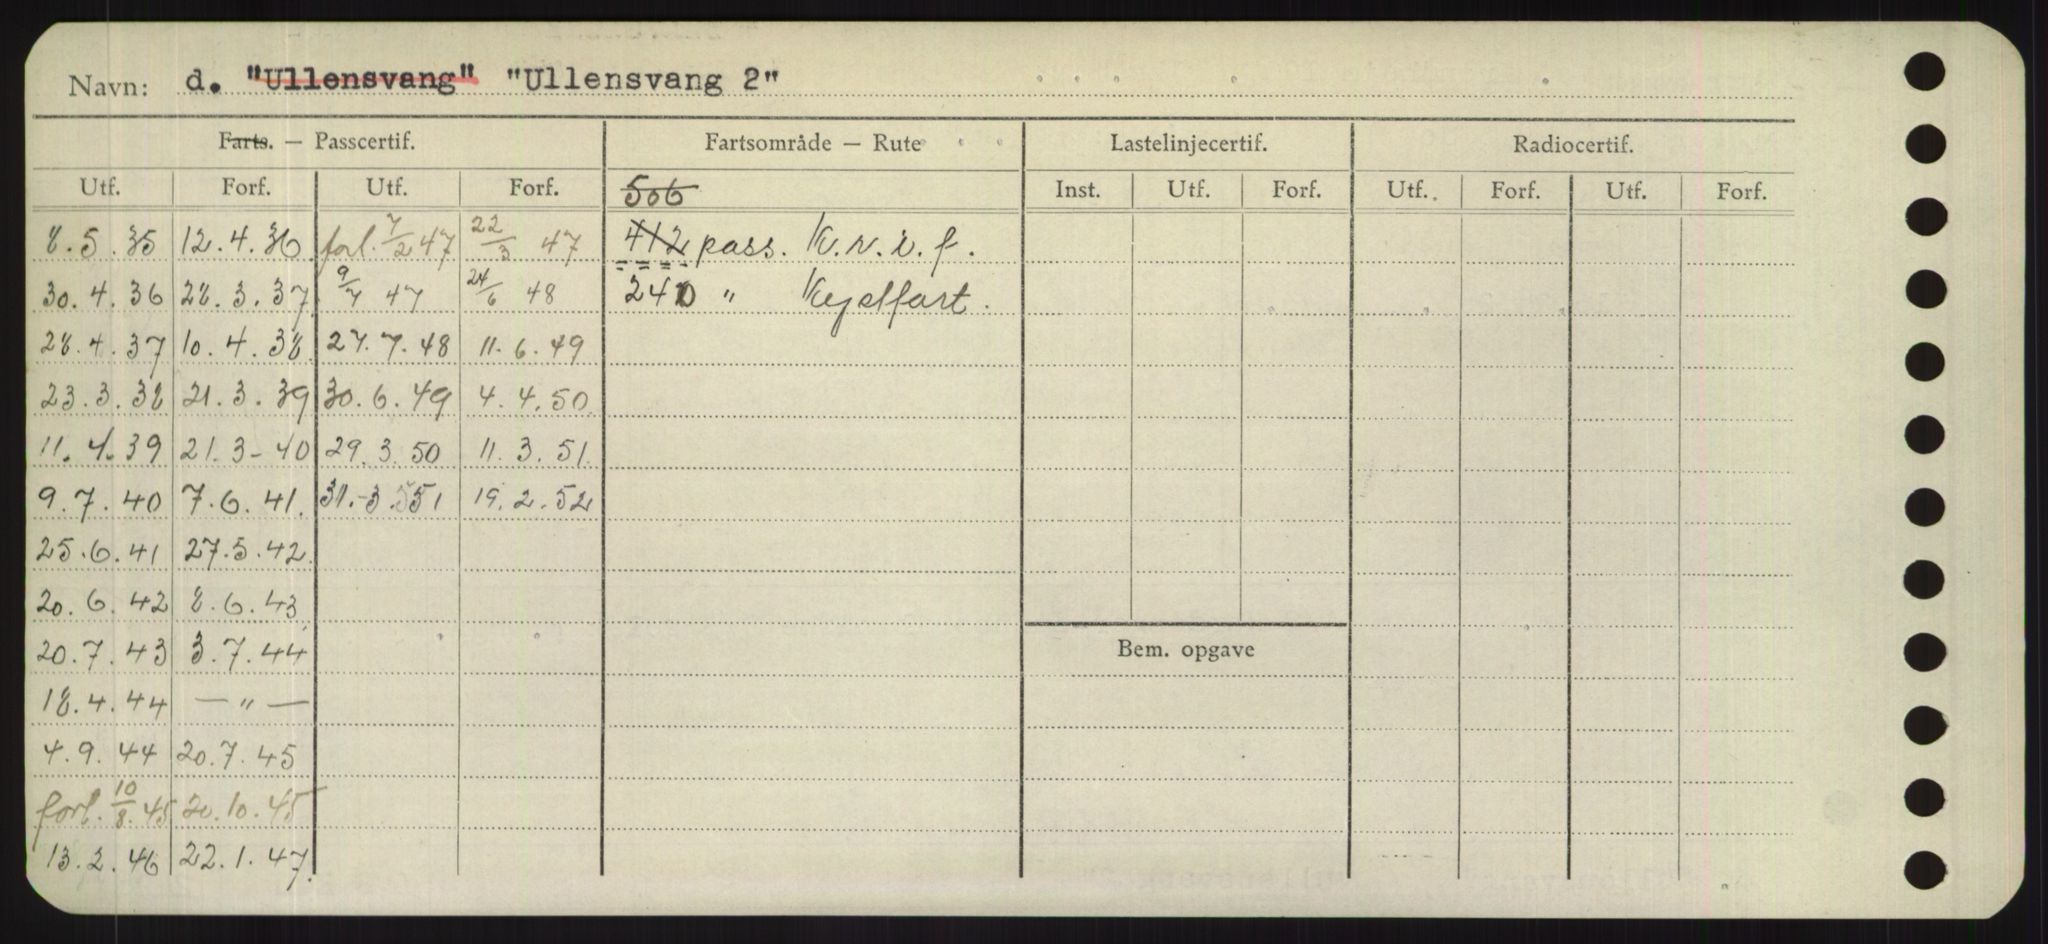 Navn: d. "Ullensvang" "Ullensvang 2"
Farts. — Passcertif. Fartsområde — Rute Lastelinjecertif. Radiocertif.
Utf. Forf. Utf. Forf. 506 Inst. Utf. Forf. Utf. Forf. Utf. Forf.
8.5.35 12.4.36 forl. 7/2 47 22/3 47 412 pass. K.v.i.f.
30.4.36 28.3.37 9/7 47 24/6 48 240 "
28.4.37 10.4.38 27.7.48 11.6.49
23.3.38 21.3.39 30.6.49 4.4.50
11.4.39 21.3-40 29.3.50 11.3.51
9.7.40 7.6.41. 31.-3.551 19.2.52
25.6.41 27.5.42.
20.6.42 8.6.43
20.7.43 3.7.44
Bem. opgave
18.4.44 — " —
4.9.44 20.7.45
forl. 10/8.45 20.10.45
13.2.46 22.1.47.